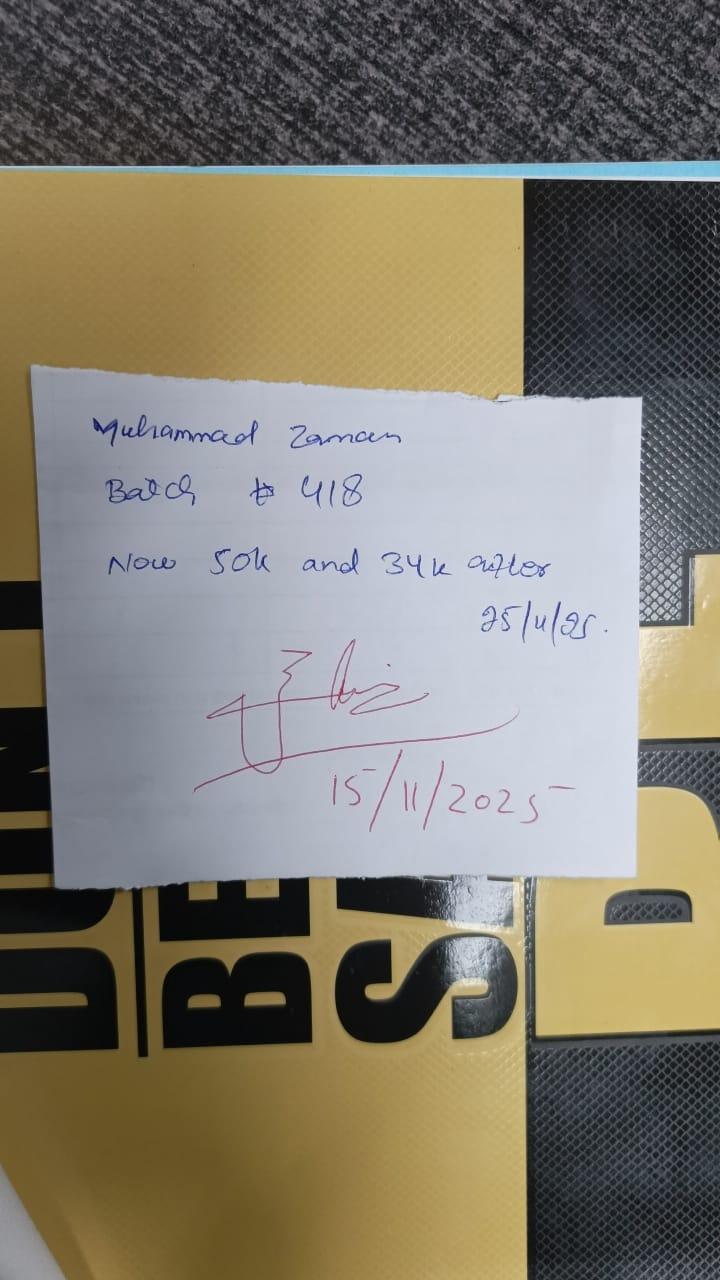 Muhammad Zaman
Batch # 418
Now 50k and 34k after
25/11/25.
15/11/2025
BE
SA